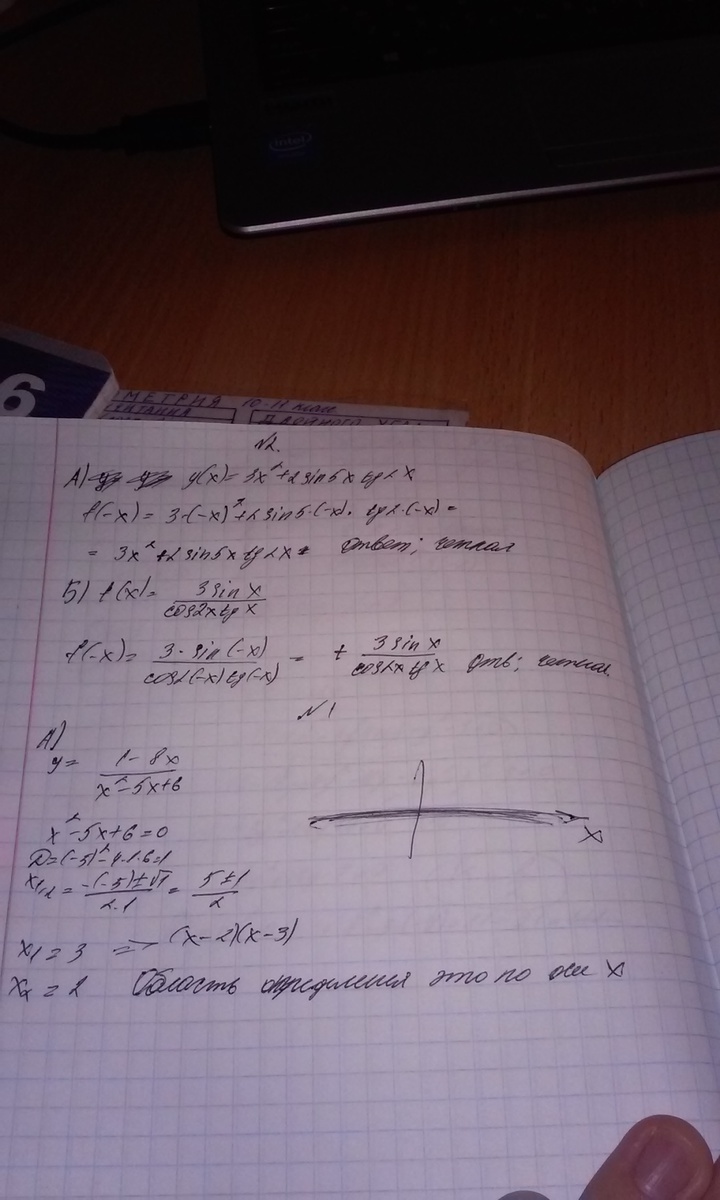 intel
6
МЕТРИЯ 10-11 класс
ДВОЙНОГО
№2.
А) y(x) = 3x² + 2 sin 5x tg 2x
f(-x) = 3·(-x)² + 2 sin 5·(-x)· tg 2·(-x) =
= 3x² + 2 sin 5x tg 2x Ответ; четная
Б) f(x) = 3 sin x / cos 2x tg x
f(-x) = 3·sin(-x) / cos 2(-x) tg(-x) = + 3 sin x / cos 2x tg x отв; четная.
№1
А)
y = 1-8x / x²-5x+6
x
x²-5x+6=0
D=(-5)²-4·1·6=1
x₁,₂ = -(-5)±√1 / 2·1 = 5±1 / 2
x₁ = 3 => (x-2)(x-3)
x₂ = 2 Область определения это по оси x